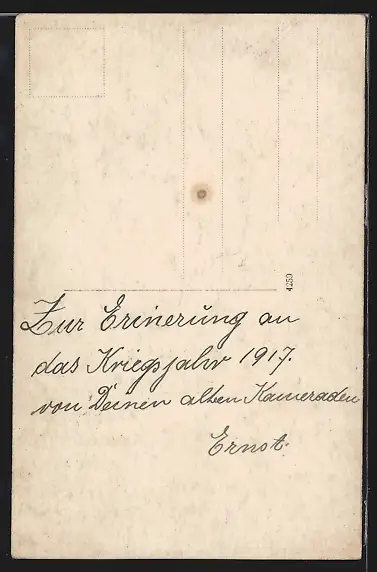 4259
Zur Erinerung an
das Kriegsjahr 1917.
von Deinen alten Kameraden
Ernst.